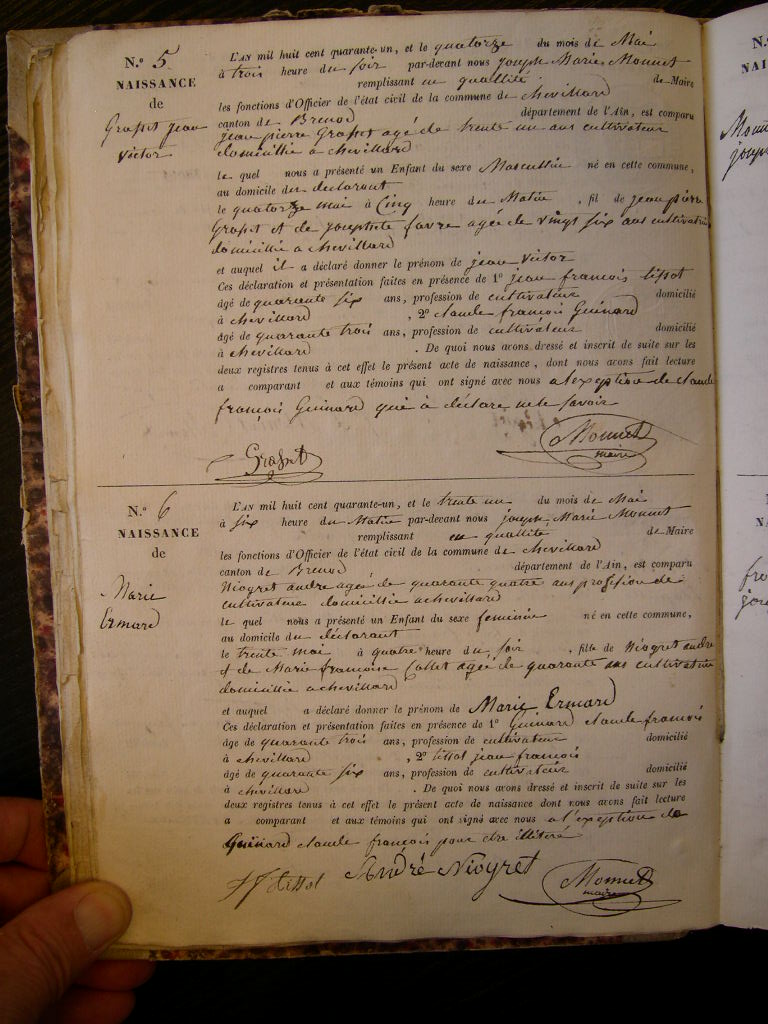 N.º 5
NAISSANCE
de
Grosset jean
victor
L'AN mil huit cent quarante-un, et le quatorze du mois de Mai
à trois heure du soir par-devant nous joseph Marie Monnet
remplissant en quallité de Maire
les fonctions d'Officier de l'état civil de la commune de chevillard
canton de Brenod département de l'Ain, est comparu
jean pierre Grosset agé de trente un ans cultivateur
domicillié a chevillard
le quel nous a présenté un Enfant du sexe Mascullin né en cette commune,
au domicile du declarant
le quatorze mai à Cinq heure du Matin , fil de jean pierre
Grosset et de josephte favre agée de vingt six ans cultivatrice
domicillié a chevillard
et auquel il a déclaré donner le prénom de jean victor
Ces déclaration et présentation faites en présence de 1º jean françois tissot
âgé de quarante six ans, profession de cultivateur domicilié
à chevillard , 2º claude françois Guinard
âgé de quarante trois ans, profession de cultivateur domicilié
à chevillard . De quoi nous avons dressé et inscrit de suite sur les
deux registres tenus à cet effet le présent acte de naissance, dont nous avons fait lecture
a comparant et aux témoins qui ont signé avec nous a lexeption de claude
françois Guinard qui à déclare ne le savoir
Grosset Monnet
maire
N.º 6
NAISSANCE
de
Marie
Ermard
L'AN mil huit cent quarante-un, et le trente un du mois de Mai
à six heure du Matin par-devant nous joseph Marie Monnet
remplissant en qualité de Maire
les fonctions d'Officier de l'état civil de la commune de chevillard
canton de Brenod département de l'Ain, est comparu
Niogret andre agé de quarante quatre ans profession de
cultivateur domicillié a chevillard
le quel nous a présenté un Enfant du sexe feminin né en cette commune,
au domicile du déclarant
le trente mai à quatre heure du soir , fille de Niogret andre
et de Marie francoise Collet agée de quarante ans cultivatrice
domicillié a chevillard
et auquel a déclaré donner le prénom de Marie Ermard
Ces déclaration et présentation faites en présence de 1º Guinard claude francois
âge de quarante trois ans, profession de cultivateur domicilié
à chevillard , 2º tissot jean francois
âgé de quarante six ans, profession de cultivateur domicilié
à chevillard . De quoi nous avons dressé et inscrit de suite sur les
deux registres tenus à cet effet le présent acte de naissance dont nous avons fait lecture
a comparant et aux témoins qui ont signé avec nous a l'exeption de
Guinard claude françois pour etre illitéré
JF tissot André Niogret Monnet
maire